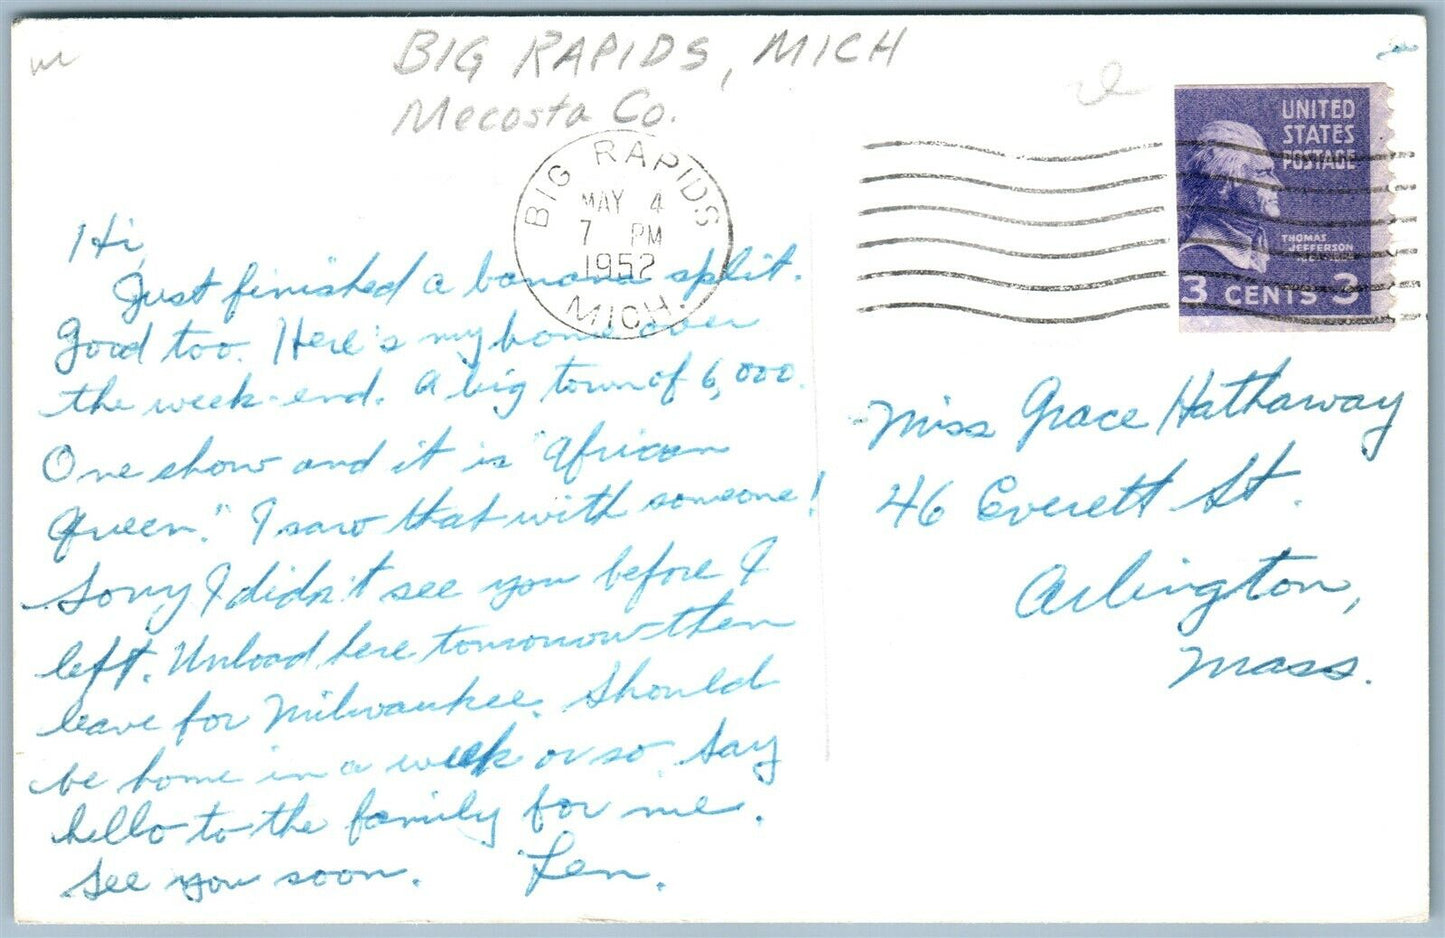 BIG RAPIDS, MICH
Mecosta Co.
BIG RAPIDS
MAY 4
7 PM
1952
MICH.
UNITED
STATES
POSTAGE
THOMAS
JEFFERSON
3 CENTS 3
Hi,
Just finished a banana split.
Good too. Here's my home over
the week-end. A big town of 6,000.
One show and it is "African
Queen." I saw that with someone!
Sorry I didn't see you before I
left. Unload here tomorrow then
leave for Milwaukee. Should
be home in a week or so. Say
hello to the family for me.
See you soon. Len.
Miss Grace Hathaway
46 Everett St.
Arlington,
Mass.